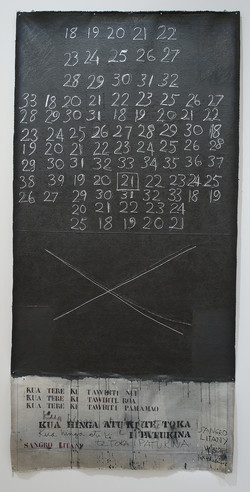 18 19 20 21 22
23 24 25 26 27
28 29 30 31 32
33 18 20 21 22 23 25 26 27
28 29 30 31 18 19 20 21 22
23 24 25 26 27 28 29 30 18
19 20 21 22 23 24 25 26 28
29 30 31 32 33 34 35 36 37
38 39 19 20 21 22 23 24 25
26 27 29 30 31 32 33 18 19
20 21 22 23 24
25 18 19 20 21
KUA TERE KI TAWHITI NUI
KUA TERE KI TAWHITI ROA
KUA TERE KI TAWHITI PAMAMAO
KUA HINGA ATU KI TE TOKA
I PATUKINA
TE TOKA PATUKINA
SANGRO LITANY
SANGRO
LITANY